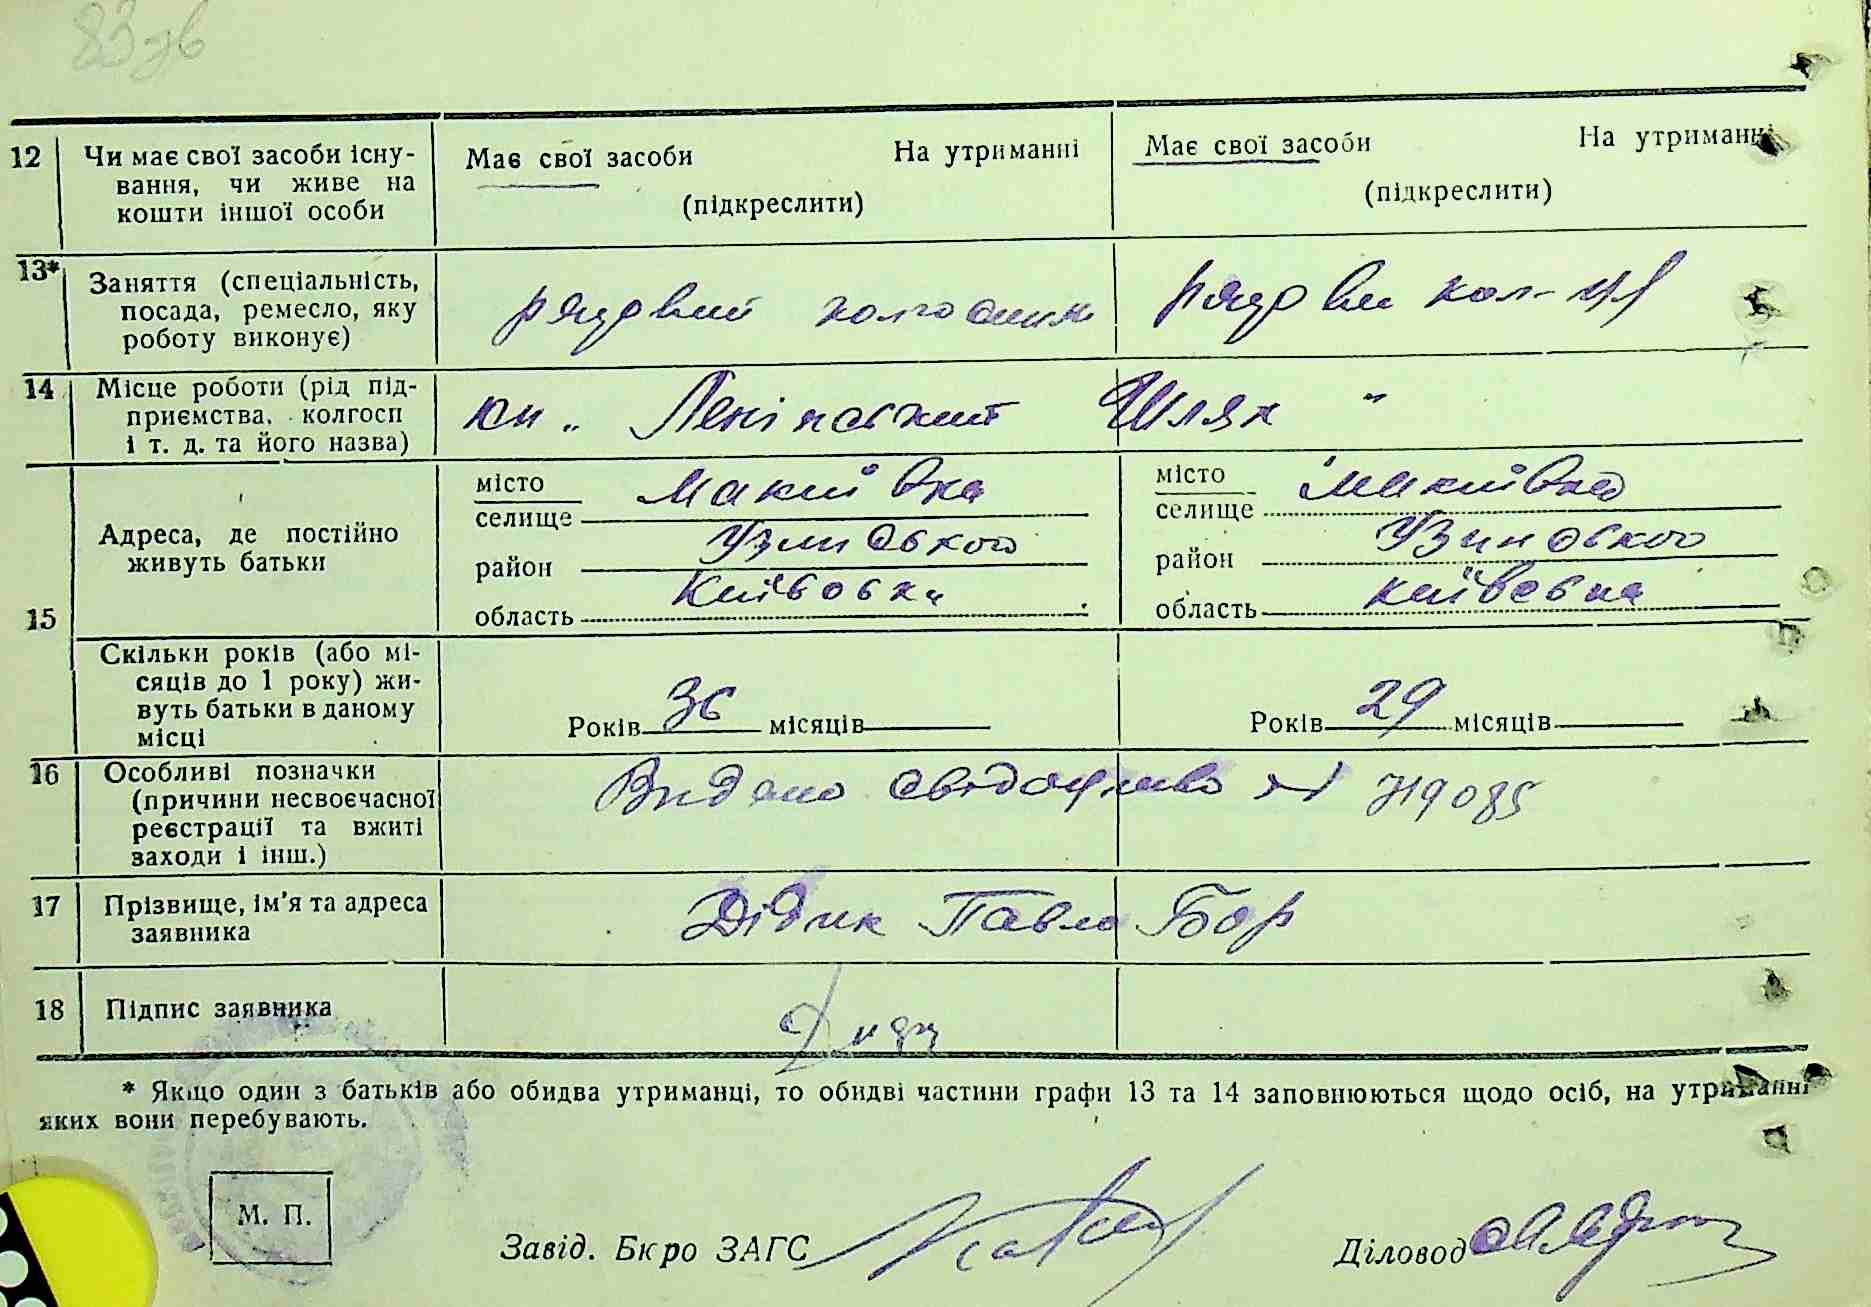 83 зв
12 Чи має свої засоби існу-
вання, чи живе на
кошти іншої особи
Має свої засоби На утриманні
(підкреслити)
Має свої засоби На утриманні
(підкреслити)
13* Заняття (спеціальність,
посада, ремесло, яку
роботу виконує)
рядовий колгосник
рядови кол-
14 Місце роботи (рід під-
приємства, колгосп
і т. д. та його назва)
„ Ленінський Шлях "
15 Адреса, де постійно
живуть батьки
місто Макиївка
селище
район Узинського
область Київська
місто Макиївка
селище
район Узинського
область Київська
Скільки років (або мі-
сяців до 1 року) жи-
вуть батьки в даному
місці
Років 36 місяців
Років 29 місяців
16 Особливі позначки
(причини несвоєчасної
реєстрації та вжиті
заходи і інш.)
Видано свідоцтво № 719085
17 Прізвище, ім'я та адреса
заявника
Дідик Павло Бор
18 Підпис заявника
* Якщо один з батьків або обидва утриманці, то обидві частини графи 13 та 14 заповнюються щодо осіб, на утриманні
яких вони перебувають.
М. П.
Завід. Бюро ЗАГС
Діловод